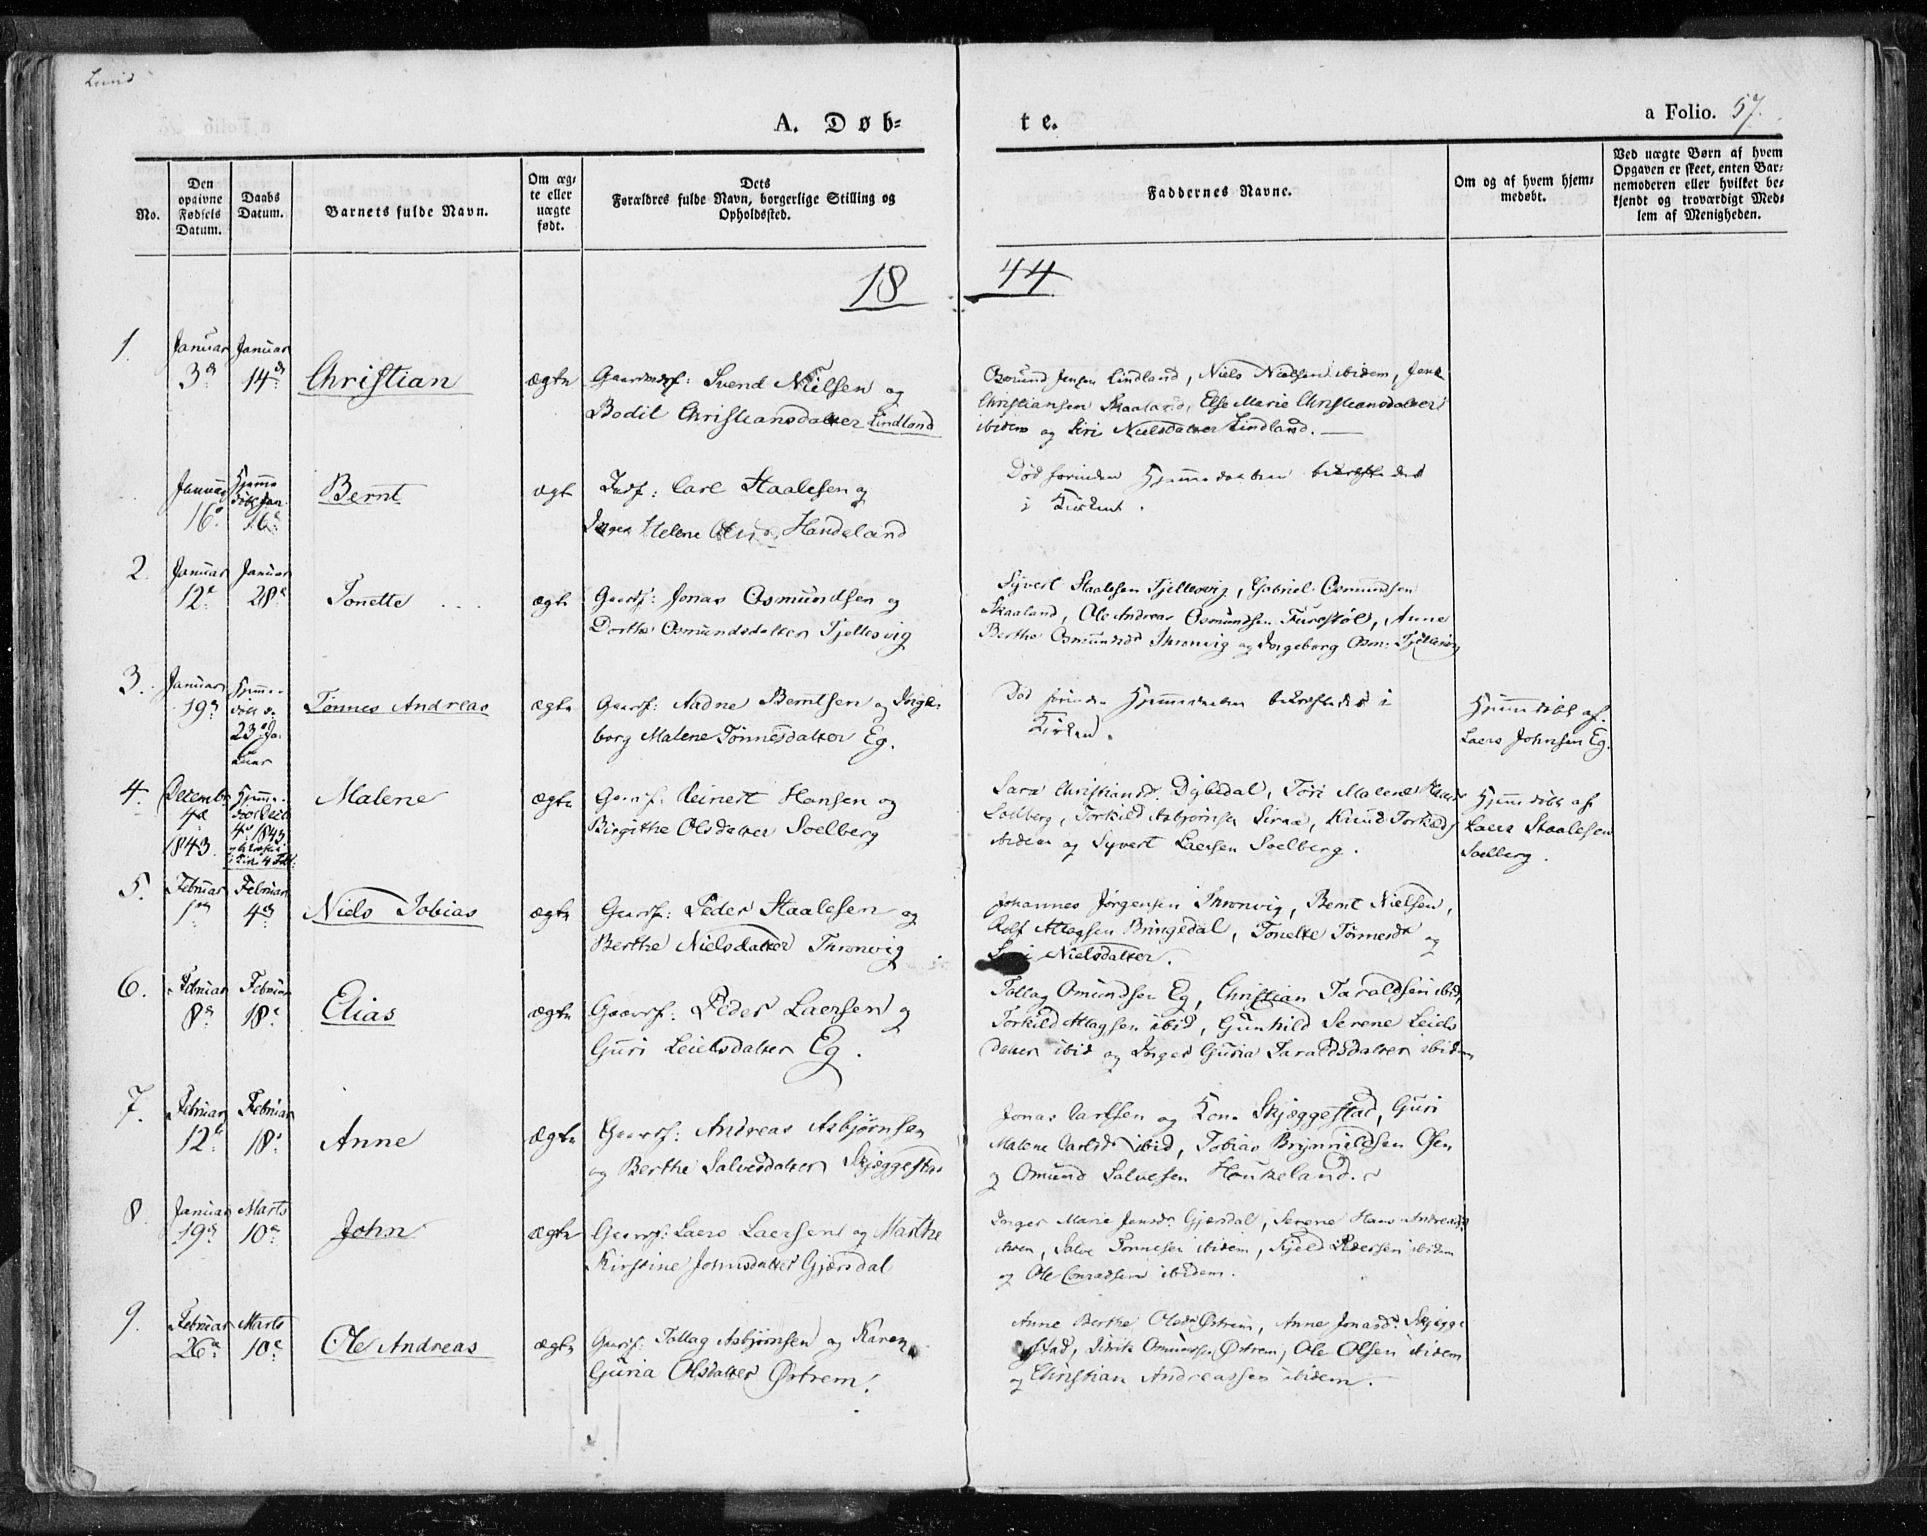 Lund
a Folio. 57.
A. Døb-
te.
No.
Den opgivne Fødsels Datum.
Daabs Datum.
Barnets fulde Navn.
Om ægte eller uægte født.
Dets Forældres fulde Navn, borgerlige Stilling og Opholdssted.
Faddernes Navne.
Om og af hvem hjemmedøbt.
Ved uægte Børn af hvem Opgaven er skeet, enten Barnemoderen eller hvilket bekjendt og troværdigt Medlem af Menigheden.
18 44
1.
Januar 3d
Januar 14d
Christian
ægte
Svend Nielsen og
Bodil Christiansdatter Lindland
Jensen Lindland, Niels Nielsen ibidem, Jens
Christiansen Skaaland, Else Marie Christiansdatter
ibidem og Siri Nielsdatter Lindland.
Januar 16
Hjemmedøbt Jan 16
Bernt
ægte
Indf: Carl Staalesen og
Inger Helene Handeland
Død forinden Hjemmedaaben
i Kirken.
2.
Januar 12
Januar 28
Tonette
ægte
Gaardf: Jonas Osmundsen og
Dorthe Osmundsdatter Fjellesvig
Syvert Staalesen Fjellesvig, Gabriel Osmundsen
Skaaland, Ole Andreas Osmundsen Furestøl, Anne
Berthe Osmundsd Thronvig og Ingeborg Osm: Fjellesvig
3.
Januar 19
23
Tønnes Andreas
ægte
Gaardf: Aadne Berntsen og Inge-
borg Malene Tønnesdatter Eg.
Død forinden Hjemmedaaben bekræftedes i
Kirken.
Hjemmedøbt af
Laers Johnsen Eg.
4.
Decembr 4d 1843
4 1843
Malene
ægte
Gaardf: Reinert Hansen og
Birgithe Olsdatter Soelberg
Sara Christiansd: Dybedal, Tori Malene
Soelberg, Torkild Asbjørnsen Siraa, Knud Torkilds
ibidem og Syvert Laersen Soelberg.
Hjemmedøbt af
Laers Staalesen
Soelberg.
5.
Februar 1
Februar 4
Niels Tobias
ægte
Gaardf: Peder Staalesen og
Berthe Nielsdatter Thronvig
Johannes Jørgensen Thronvig, Bernt Nielsen,
Rolf Atlagsen Bringedal, Tonette Tønnesd og
Nielsdatter.
6.
Februar 8
Februar 18
Elias
ægte
Gaardf: Peder Laersen og
Guri Leielsdatter Eg.
Tollag Omundsen Eg, Christian Taraldsen ibid,
Torkild Atlagsen ibid, Gunhild Serene Leiels
datter ibid og Inger Guria Taraldsdatter ibidem
7.
Februar 12
Februar 18
Anne
ægte
Gaardf: Andreas Asbjørnsen
og Berthe Salvesdatter Skjæggestad
Jonas Carlsen og Kone Skjæggestad, Guri
Malene Carlsd ibid, Tobias Brynnildsen Øen
og Omund Salvesen Houkeland.
8.
Januar 19
Marts 10
John
ægte
Gaardf: Laers Laersen og Marthe
Kirstine Johnsdatter Gjersdal
Inger Marie Jensd: Gjersdal, Serene Hans Andreasd
ibidem, Salve Tønnesen ibidem, Kjeld Pedersen ibidem
og Ole Conradsen ibidem.
9.
Februar 26
Marts 10
Ole Andreas
ægte
Gaardf: Tollag Asbjørnsen og Karen
Guria Olsdatter Østrem.
Anne Berthe Olsd Østrem, Anne Jonasd: Skjægge
stad, Omundsen Østrem, Ole Olsen ibidem
og Christian Andreassen ibidem.